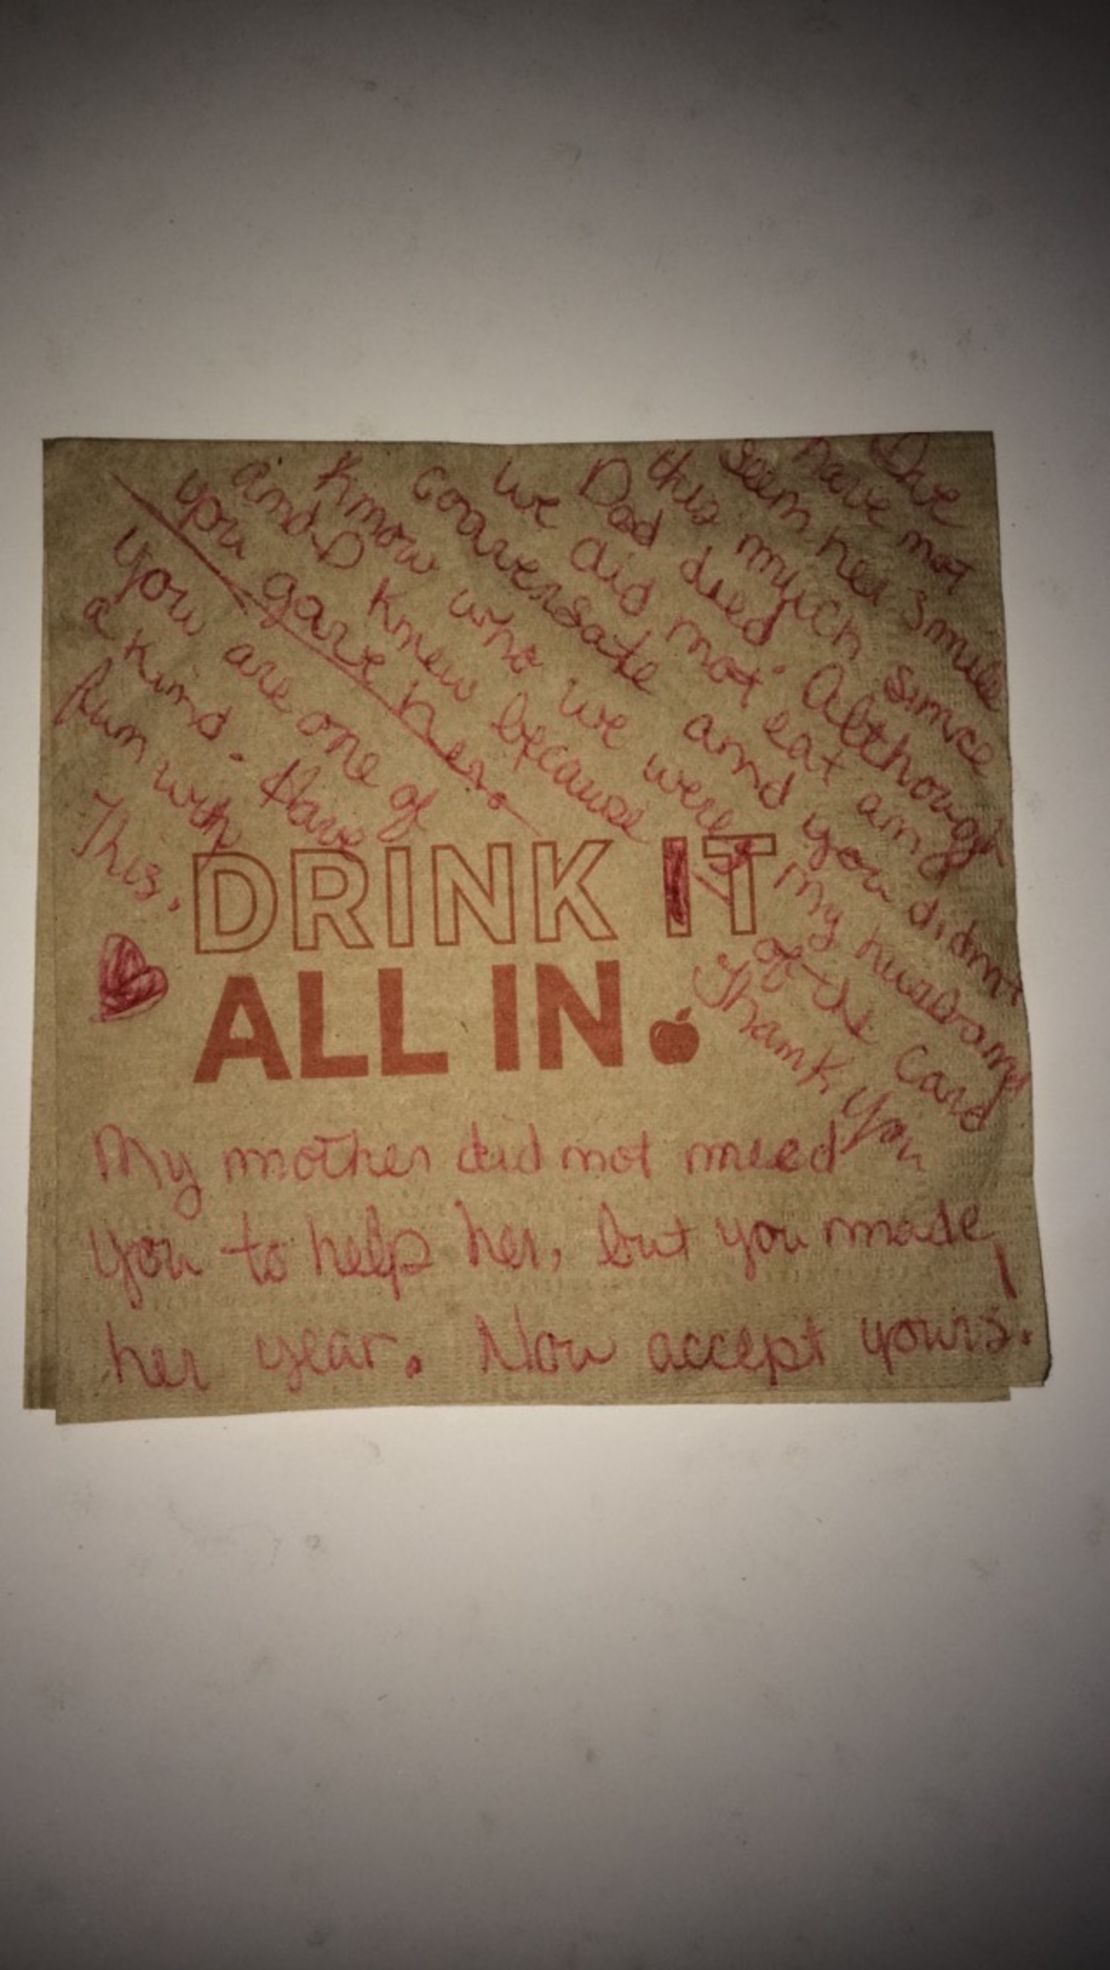 have not
seen her smile
this much since
Dad died. Although
we did not eat and
conversate and you didnt
know who we were, my husband
and I knew because of the card
you gave her. Thank you
You are one of
a kind. Have
fun with
This.
DRINK IT
ALL IN.
My mother did not need
you to help her, but you made
her year. Now accept yours!